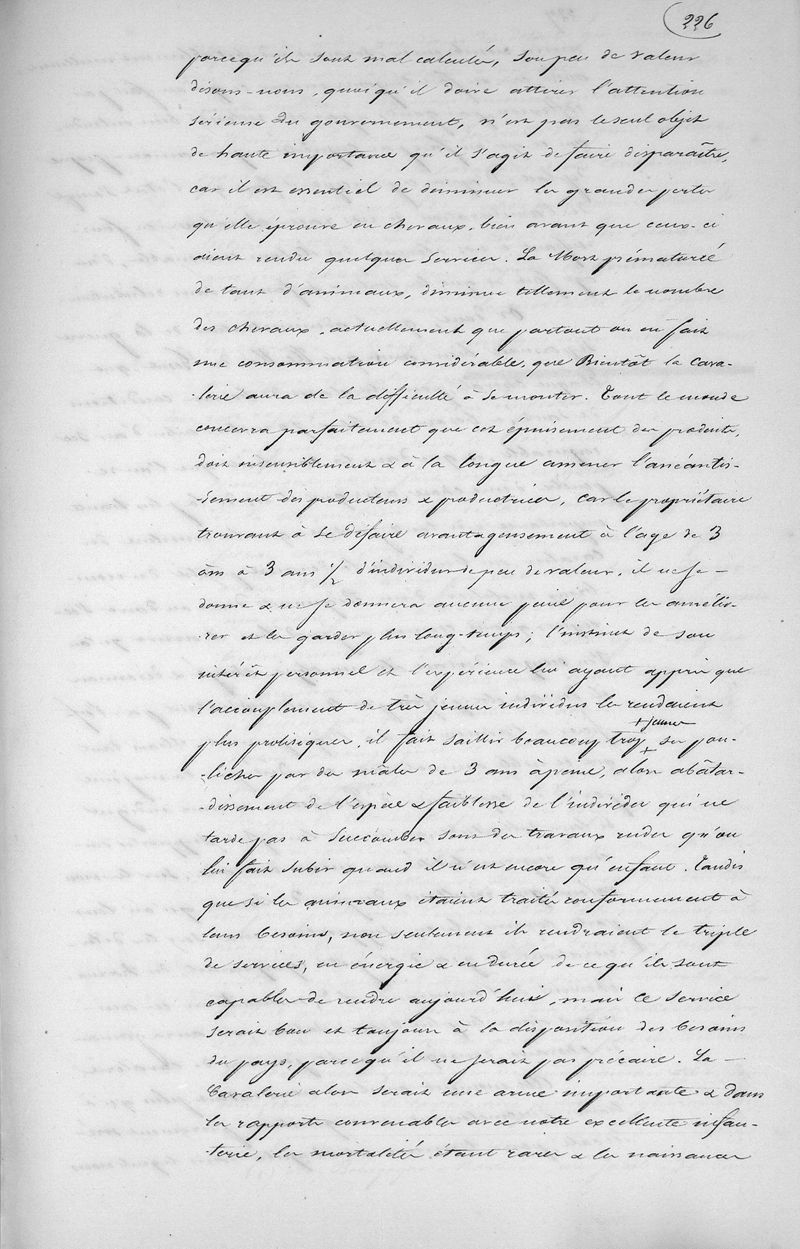 226
parcequ'ils sont mal calculés, son peu de valeur
disons-nous, quoiqu'il doive attirer l'attention
sérieuse du gouvernement, n'est pas le seul objet
de haute importance qu'il s'agit de faire disparaître,
car il est essentiel de diminuer les grandes pertes
qu'elle éprouve en chevaux, bien avant que ceux-ci
aient rendu quelques services. La Mort prématurée
de tant d'animeaux, diminue tellement le nombre
des chevaux, actuellement que partout on en fait
une consommation considérable, que Bientôt la cava-
-lerie aura de la difficulté à se monter. Tout le monde
concevra parfaitement que cet épuisement des produits,
doit insensiblement & à la longue amener l'anéantis-
-sement des producteurs & productrices, car le propriétaire
trouvant à se défaire avantageusement à l'age de 3
ans à 3 ans 1/2 d'individus de peu de valeur, il ne se -
donne & ne se donnera aucune peine pour les amélio-
-rer et les garder plus long-temps; l'instinct de son
intérêt personnel et l'expérience lui ayant appris que
l'accouplement de très jeunes individus les rendaient
+ jeunes
plus prolifiques, il fait saillir beaucoup trop + ses pou-
-liches par des mâles de 3 ans à peine, alors abâtar-
-dissement de l'espèce & faiblesse de l'individu qui ne
tarde pas à succomber sous des travaux rudes qu'on
lui fait subir quand il n'est encore qu'enfant. Tandis
que si les animaux étaient traités conformement à
leurs besoins, non seulement ils rendraient le triple
de services, en énergie & en durée de ce qu'ils sont
capables de rendre aujourd'hui, mais ce service
serait bon et toujours à la disposition des besoins
du pays, parcequ'il ne serait pas précaire. La -
Cavalerie alors serait une arme importante & dans
les rapports convenables avec notre excellente infan-
-terie, les mortalités étant rares & les naissances